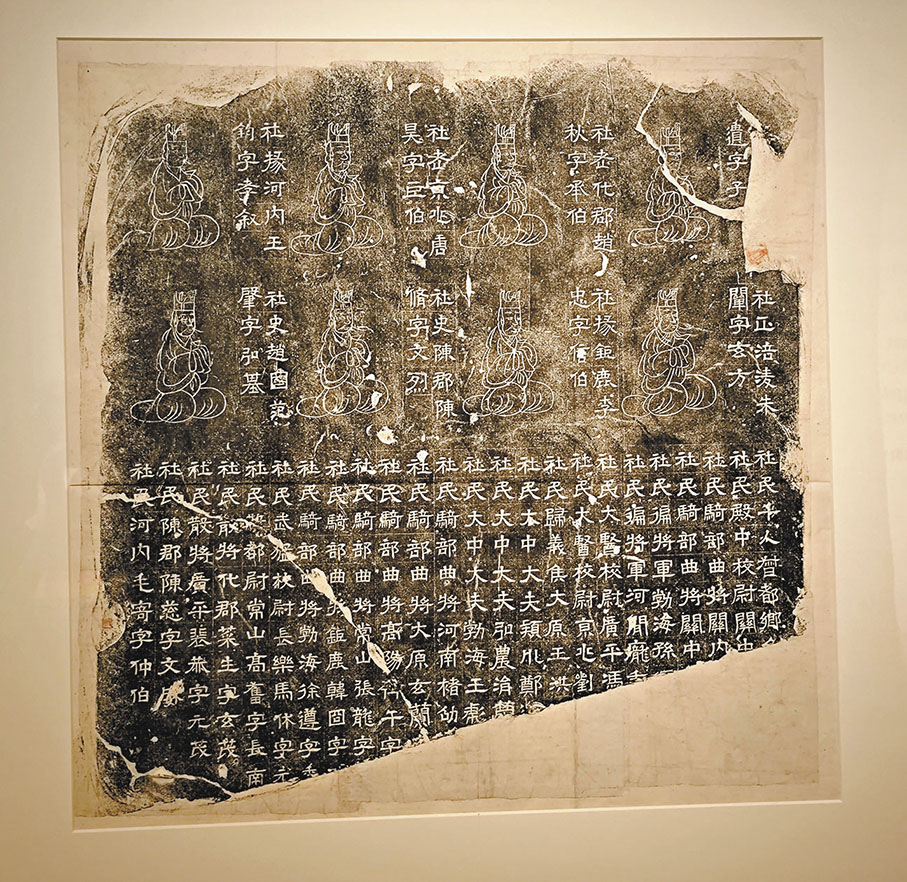 遺字子
社老代郡趙
秋字承伯
社老京兆唐
昊字巨伯
社掾河内王
鈞字孝叔
社正涪陵朱
闡字玄方
社掾鉅鹿李
忠字信伯
社史陳郡陳
脩字文烈
社史趙國范
肇字弘基
社民千人督都鄉
社民殿中校尉關中
社民騎部曲將關内
社民騎部曲將關中
社民偏將軍勃海孫
社民偏將軍河間龐
社民大醫校尉廣平馮
社民大醫校尉京兆劉
社民歸義侯大原王洪
社民大中大夫潁川鄭
社民大中大夫弘農
社民大中大夫勃海王
社民騎部曲將河南楮
社民騎部曲將大原玄蘭
社民騎部曲將高陽午字
社民騎部曲將常山張龍字
社民騎部曲將鉅鹿韓固字
社民騎部曲將勃海徐遵字
社民武猛校尉長樂馬休字元
社民都尉常山高奮字長南
社民散將代郡萊生字玄茂
社民散將廣平裴恭字元茂
社民陳郡陳慈字文
社民河内毛寄字仲伯